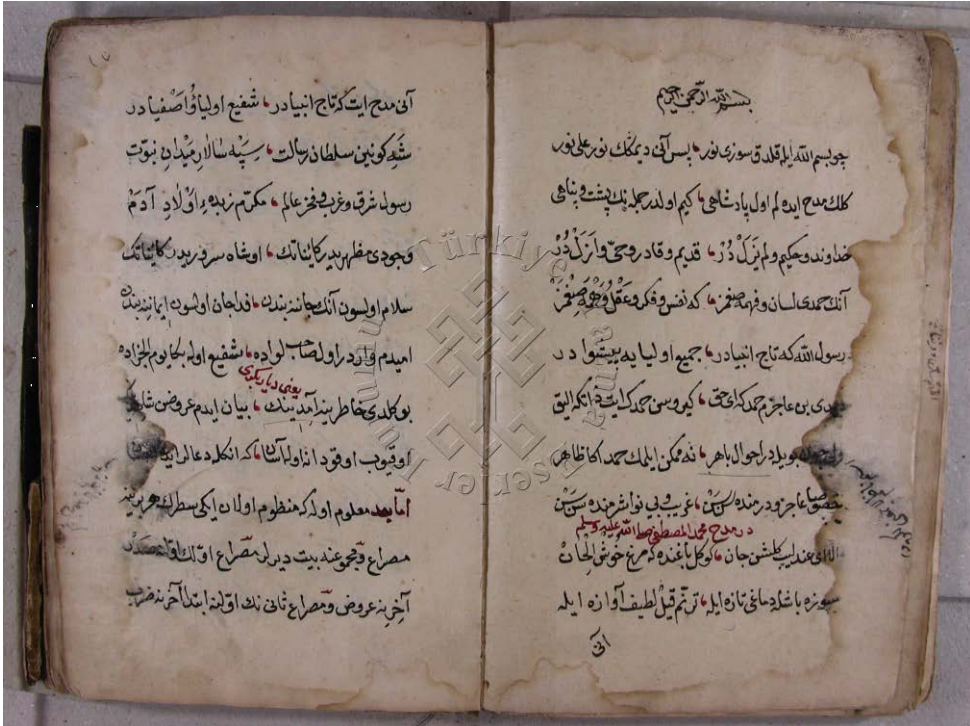 بسم الله الرحمن الرحيم
چو بسم الله ايله قلدق سوزى نور پس آنى ديمكك نور على نور
كلك مدح ايده لم اول پادشاهى كيم اولدر جمله نك پشت و پناهى
خداوند و حكيم و لم يزل در قديم و قادر و حى و ازل در
آنك حمدى لسان و فهمه صغمز كه نفس و فكر و عقل و صغمز
رسول الله كه تاج انبيادر جميع اوليايه پيشوادر
بن عاجزم حمد كه اى حق كيم حمدك اليق
بويله در احوال باهر نه ممكن ايلمك حمد اكا ظاهر
خصوصا عاجز و درمنده سن غريب و بى نوا شرمنده سن
در مدح محمد المصطفى صلى الله عليه وسلم
اى عندليب كلشن جان كوكل باغنده كه مرغ خوش الحان
سوزه باشله دماغى تازه ايله ترنم قيل لطيف آوازه ايله
آنى
آنى مدح ايت كه تاج انبيادر شفيع اوليا و اصفيادر
شه كونين سلطان رسالت سپه سالار ميدان نبوت
رسول شرق و غرب و فخر عالم مكرم زبده اولاد آدم
وجودى مظهريدر كايناتك او شاه سروريدر كايناتك
سلام اولسون آنك جاننه بندن فدا جان اولسون ايماننه بندن
اميدم واردر اول صاحب لواده شفيع اوله بكا يوم الجزاده
يعنى دياربكرى
بو كلدى خاطرينه آمدينك بيان ايدم عروضن
اوقيوب اوقودانه اوله آسان كه انكله دعالر
اما بعد معلوم اوله كه منظوم اولان ايكى سطرك هر برينه
مصراع و مجموعنه بيت ديرلر مصراع اولك اولنه صدر
آخرينه عروض و مصراع ثانى نك اولنه ابتدا آخرينه ضرب
Türkiye Yazma Eserler Kurumu